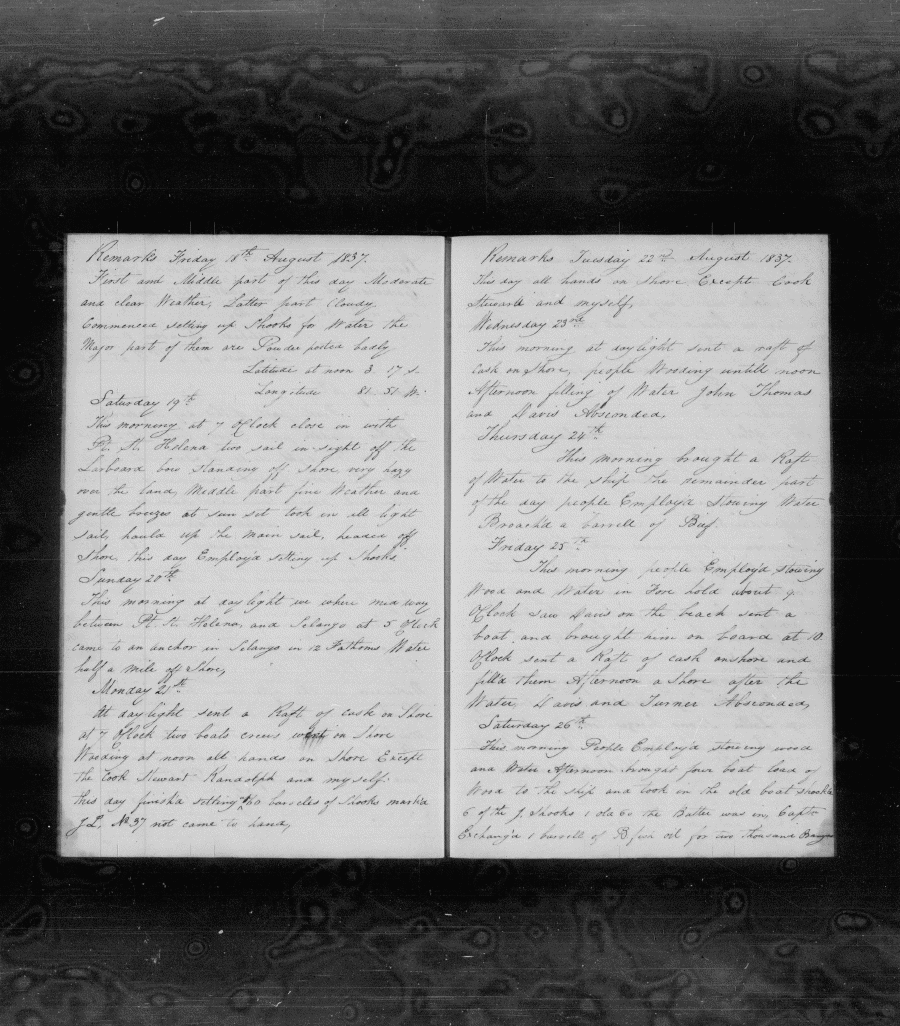 Remarks Friday 18th August 1837.
First and Middle part of this day Moderate
and clear Weather, Latter part Cloudy,
Commenced setting up Shooks for Water the
Major part of them are Powder posted badly
Latitude at noon 3. 17 S.
Longitude 81. 51 W.
Saturday 19th
This morning at 7 Oclock close in with
Pt. St. Helena two sail in sight off the
Larboard bow standing off shore, very hazy
over the land, Middle part fine Weather and
gentle breezes at sun set took in all light
sail, hauld up the main sail, headed off
Shore, this day Employd setting up Shooks
Sunday 20th
This morning at day light we where mid way
between Pt. St. Helena, and Selango at 5 Oclock
came to an anchor in Selango in 12 Fathoms Water
half a mile off Shore,
Monday 21st
At day light sent a Raft of cask on Shore
at 7 Oclock two boats crews went on Shore
Wooding at noon all hands on Shore Except
the Cook Stewart Randolph and myself.
this day finishd setting 160 barreles of Shooks markd
J.L. No 37 not came to hand,
Remarks Tuesday 22nd August 1837.
This day all hands on Shore Except Cook
Stewart and myself,
Wednesday 23rd
This morning at day light sent a raft of
Cask on Shore, people Wooding untill noon
Afternoon filling of Water John Thomas
and Davis Absconded,
Thursday 24th
This morning brought a Raft
of Water to the ship the remainder part
of the day people Employd Stowing Water
Broachd a barrell of Beef.
Friday 25th
This morning people Employd stowing
Wood and Water in Fore hold about 9
Oclock saw Davis on the beach sent a
boat and brought him on board at 10
Oclock sent a Raft of cask onshore and
filld them Afternoon a Shore after the
Water, Davis and Turner Absconded,
Saturday 26th
This morning People Employd stowing wood
and Water Afternoon brought four boat load of
Wood to the ship and took in the old boat
6 of the J. Shooks 1 old 60 the Batter was in, Capt
Exchangd 1 barrell of B. fish oil for two thousand Oranges